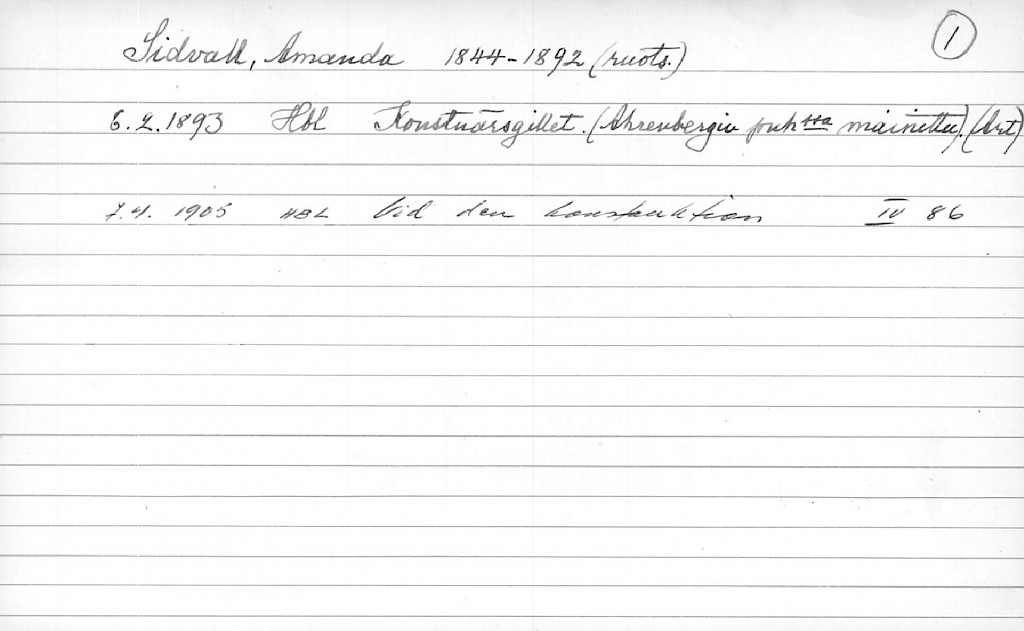 ①
Sidvall, Amanda 1844-1892 (ruots.)
6.2.1893 Hbl Konstnärsgillet. (Ahrenbergin puh.ssa mainittu). (Art)
7.4. 1905 HBL Vid den konstauktion IV 86